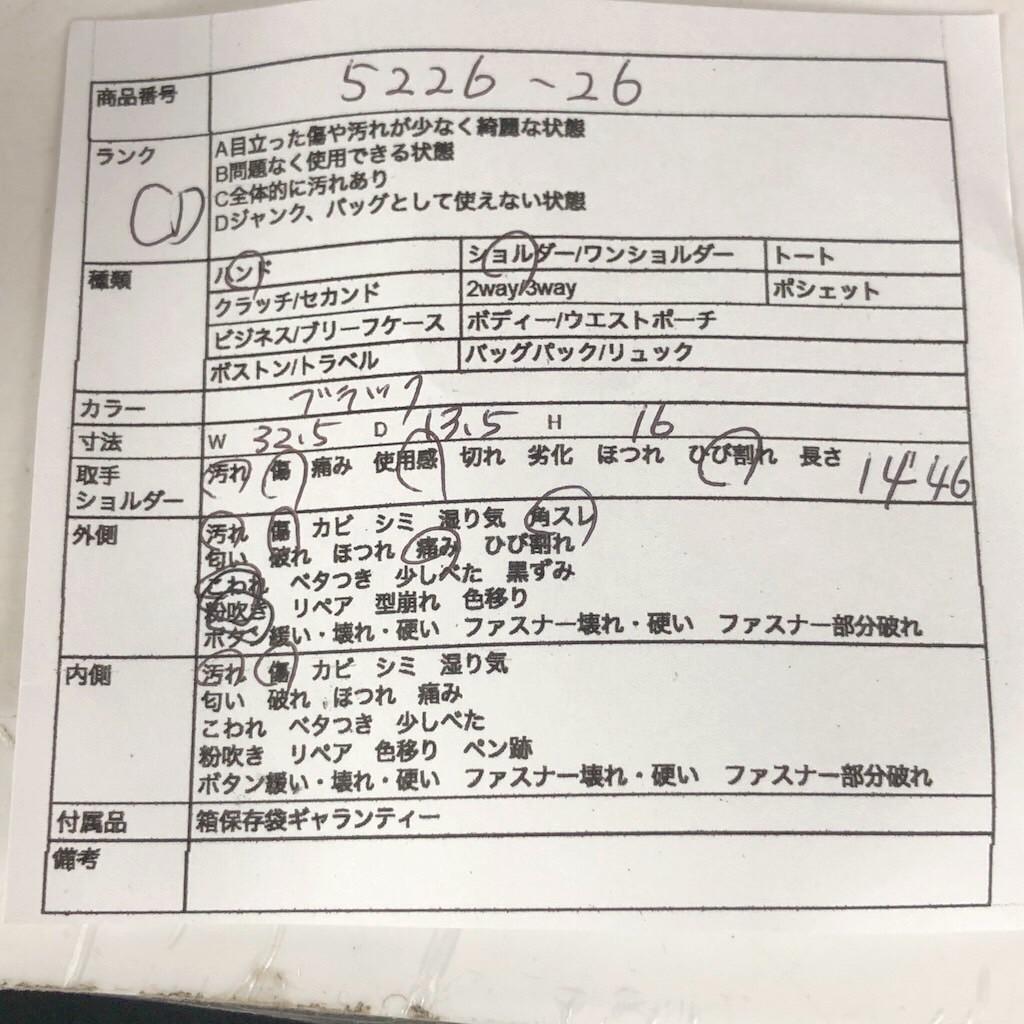 商品番号 5226-26
ランク CD
A目立った傷や汚れが少なく綺麗な状態
B問題なく使用できる状態
C全体的に汚れあり
Dジャンク、バッグとして使えない状態
種類 ハンド ショルダー/ワンショルダー トート
クラッチ/セカンド 2way/3way ポシェット
ビジネス/ブリーフケース ボディー/ウエストポーチ
ボストン/トラベル バッグパック/リュック
カラー ブラック
寸法 W 32.5 D 13.5 H 16
取手 汚れ 傷 痛み 使用感 切れ 劣化 ほつれ ひび割れ 長さ 14 46
ショルダー
外側 汚れ 傷 カビ シミ 湿り気 角スレ
匂い 破れ ほつれ 痛み ひび割れ
こわれ ベタつき 少しべた 黒ずみ
粉吹き リペア 型崩れ 色移り
ボタン緩い・壊れ・硬い ファスナー壊れ・硬い ファスナー部分破れ
内側 汚れ 傷 カビ シミ 湿り気
匂い 破れ ほつれ 痛み
こわれ ベタつき 少しべた
粉吹き リペア 色移り ペン跡
ボタン緩い・壊れ・硬い ファスナー壊れ・硬い ファスナー部分破れ
付属品 箱保存袋ギャランティー
備考